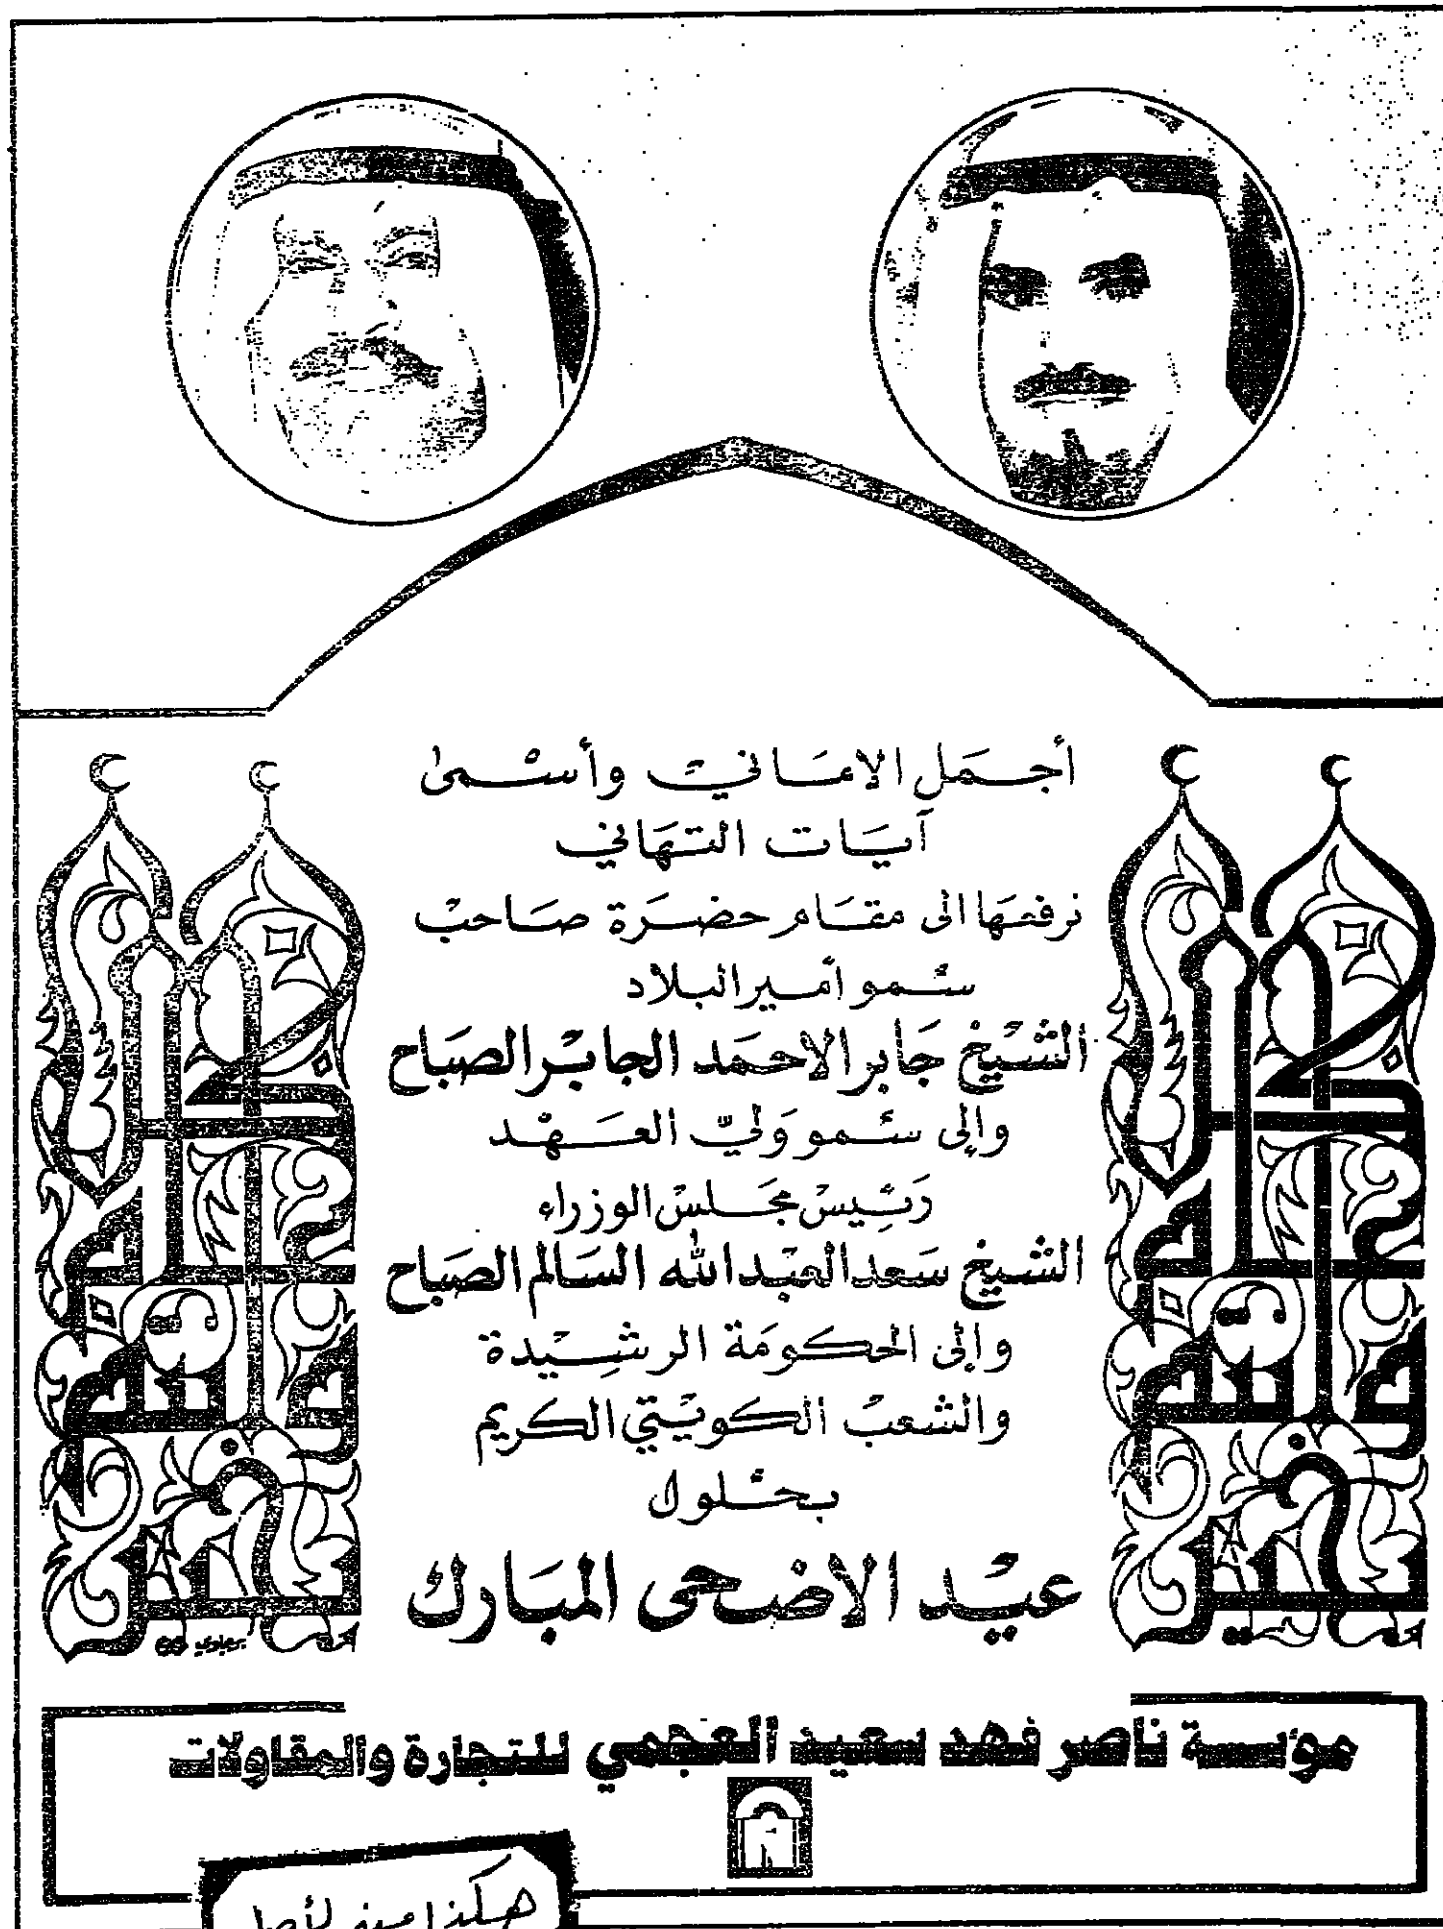 أجمل الاماني وأسمى
آيات التهاني
نرفعها الى مقام حضرة صاحب
سمو أمير البلاد
الشيخ جابر الاحمد الجابر الصباح
والى سمو ولي العهد
رئيس مجلس الوزراء
الشيخ سعد العبد الله السالم الصباح
والى الحكومة الرشيدة
والشعب الكويتي الكريم
بحلول
عيد الاضحى المبارك
مؤسسة ناصر فهد سعيد العجمي للتجارة والمقاولات
هكذا